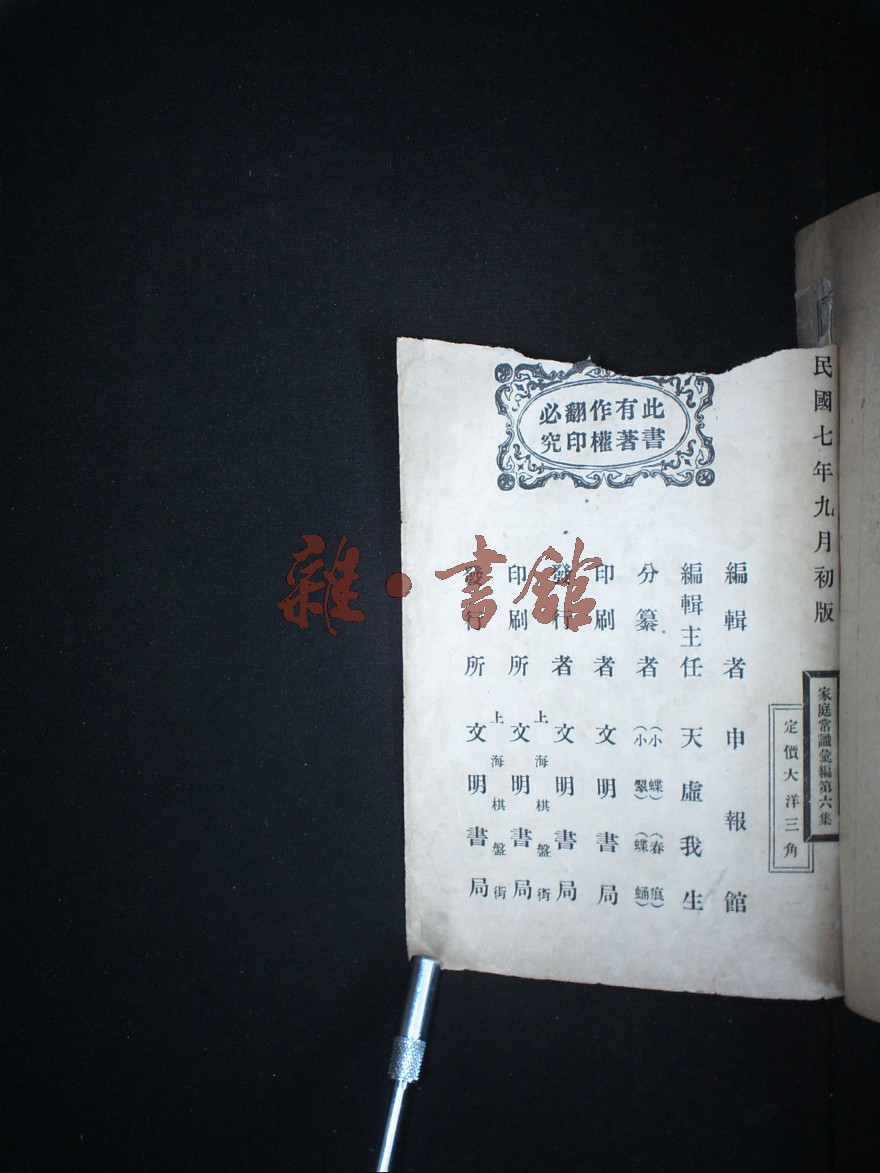 民國七年九月初版
家庭常識彙編第六集
定價大洋三角
此書有著作權翻印必究
編輯者 申報館
編輯主任 天虛我生
分纂者 (小蝶)(春痕)
(小翠)(蝶蛹)
印刷者 文明書局
發行者 文明書局
上海棋盤街
印刷所 文明書局
上海棋盤街
發行所 文明書局
雜·書館